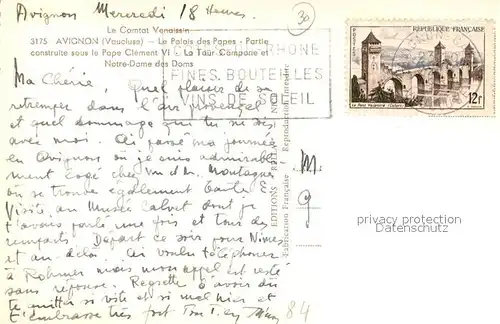 Avignon Mercredi 18 Heures.
30
Le Comtat Venaissin
3175 AVIGNON (Vaucluse) — Le Palais des Papes - Partie
construite sous le Pape Clément VI - La Tour Campane et
Notre-Dame des Doms
RHONE
FINES BOUTEILLES
VINS DE SOLEIL
REPUBLIQUE FRANÇAISE
12f
Ma Chérie, Quel plaisir de se
retremper dans l'air provençal
et quel dommage que tu ne sois
avec moi. Ai passé ma journée
en Avignon où je suis admirablement
logé chez M. et M. Montagné
où se trouve également
Visite au Musée Calvet dont je
t'avais parlé une fois et tour des
remparts. Départ ce soir pour Nîmes
et au-delà. Ai voulu téléphoner
à mais mon appel est resté
sans réponse. Regrette d'avoir dû
te quitter si vite et si mal hier et
t'embrasse très fort Ton
84
EDITIONS
Fabrication Française
Reproduction Interdite
M.
g
privacy protection
Samml.onl.de